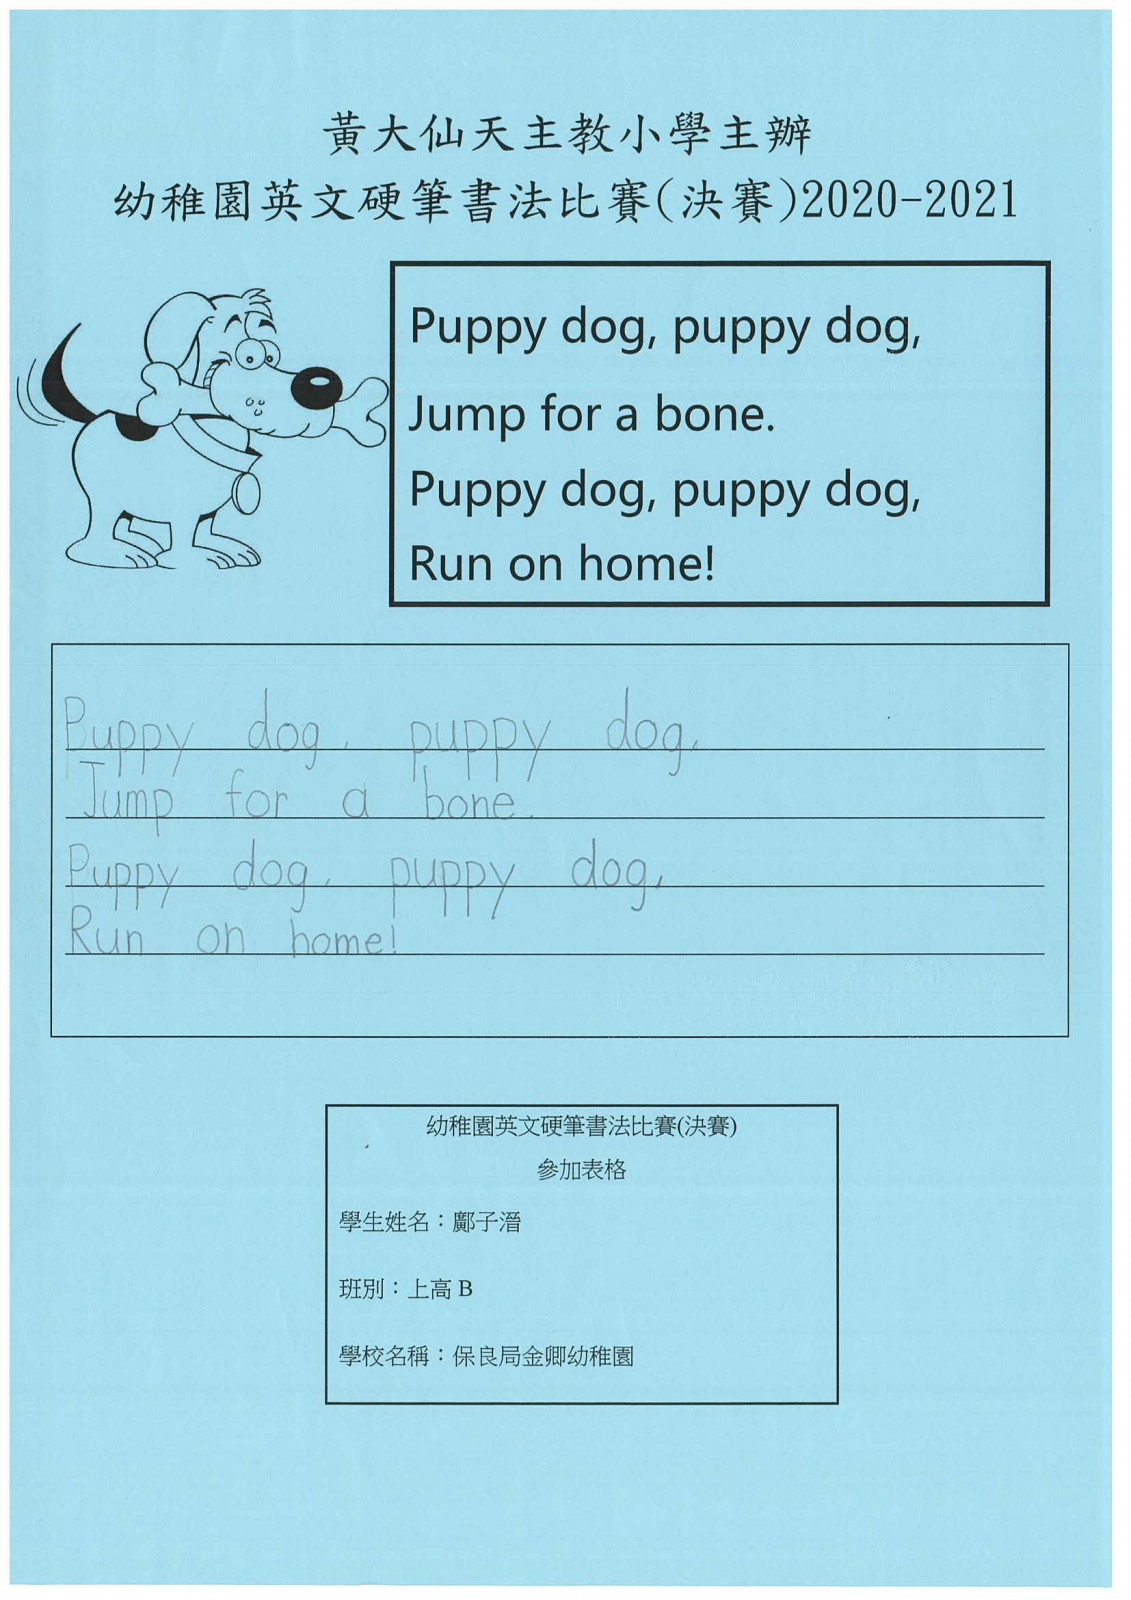 黃大仙天主教小學主辦
幼稚園英文硬筆書法比賽(決賽)2020-2021
Puppy dog, puppy dog,
Jump for a bone.
Puppy dog, puppy dog,
Run on home!
Puppy dog, puppy dog,
Jump for a bone.
Puppy dog, puppy dog,
Run on home!
幼稚園英文硬筆書法比賽(決賽)
參加表格
學生姓名：鄺子溍
班別：上高 B
學校名稱：保良局金卿幼稚園